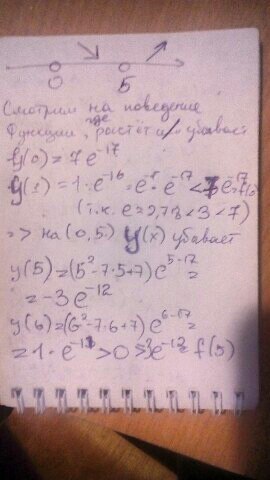 0 5
Смотрим на поведение
функции, где растёт и убывает
y(0) = 7e^-17
y(1) = 1·e^-16 = e^1·e^-17 < 7e^-17
(т.к. e=2,73<3<7)
=> на (0,5) y(x) убывает
y(5)=(5²-7·5+7)e^5-17 =
= -3e^-12
y(6)=(6²-7·6+7)e^6-17 =
= 1·e^-11 > 0 > -3e^-12 = f(5)